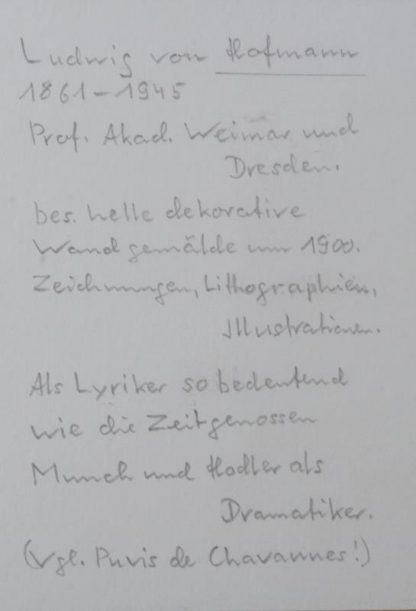 Ludwig von Hofmann
1861–1945
Prof. Akad. Weimar und
Dresden.
bes. helle dekorative
Wandgemälde um 1900.
Zeichnungen, Lithographien,
Illustrationen.
Als Lyriker so bedeutend
wie die Zeitgenossen
Munch und Hodler als
Dramatiker.
(Vgl. Puvis de Chavannes!)